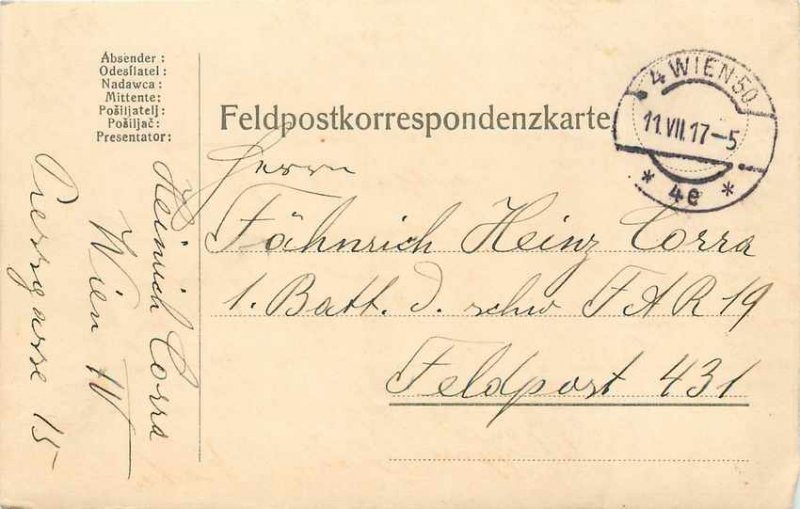 Absender :
Odesílatel :
Nadawca :
Mittente:
Pošiljatelj:
Pošiljač:
Presentator:
Heinrich Corra
Wien IV
Pressgasse 15
Feldpostkorrespondenzkarte
4 WIEN 50
11.VII.17-5
* 4e *
Herrn
Fähnrich Heinz Corra
1. Batt. d. schw F A R 19
Feldpost 431